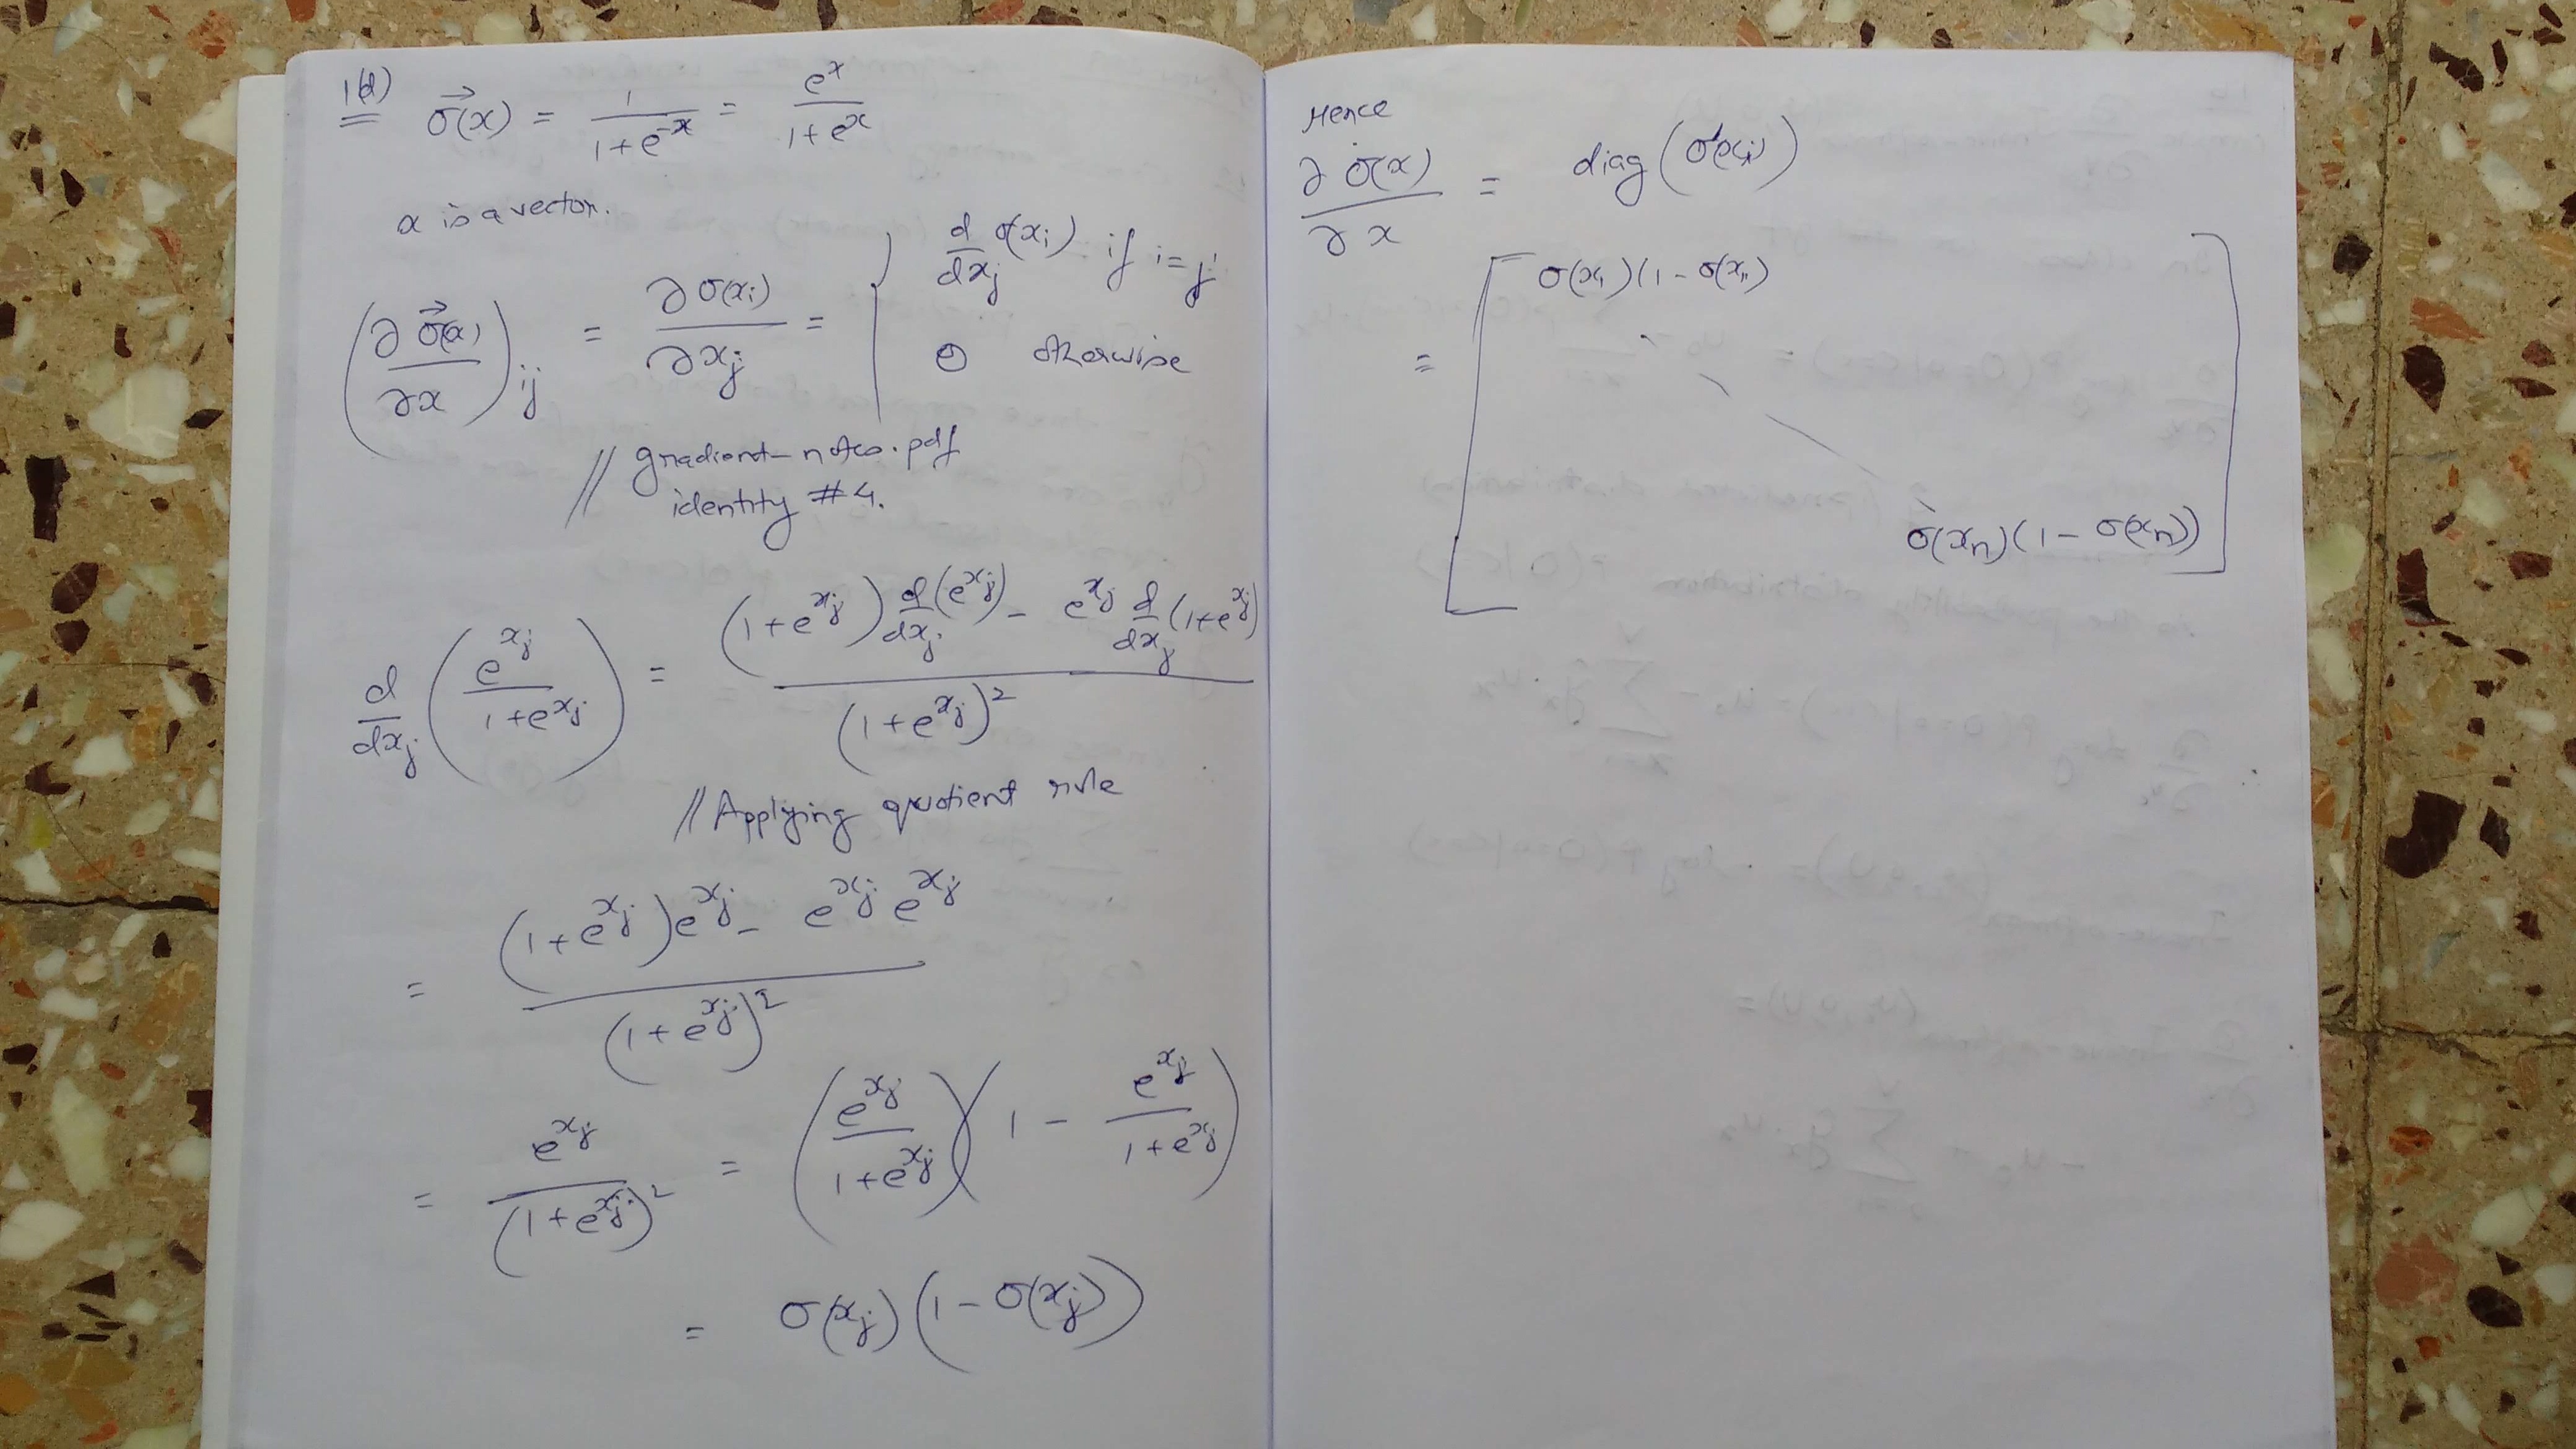 1(d) σ⃗(x) = 1/(1+e^-x) = e^x/(1+e^x)
x is a vector.
(∂σ⃗(x)/∂x)_ij = ∂σ(x_i)/∂x_j = { d/dx_j σ(x_i) if i=j
0 otherwise
// gradient-notes.pdf
identity #4.
d/dx_j (e^x_j/(1+e^x_j)) = ((1+e^x_j) d/dx_j (e^x_j) - e^x_j d/dx_j (1+e^x_j))/(1+e^x_j)^2
// Applying quotient rule
= ((1+e^x_j)e^x_j - e^x_j e^x_j)/(1+e^x_j)^2
= e^x_j/(1+e^x_j)^2 = (e^x_j/(1+e^x_j))(1 - e^x_j/(1+e^x_j))
= σ(x_j)(1-σ(x_j))
Hence
∂σ(x)/∂x = diag(σ'(x_i))
= [ σ(x_1)(1-σ(x_1))
σ(x_n)(1-σ(x_n)) ]